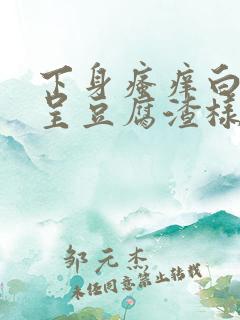 下身瘙痒白
呈豆腐渣样
邹元杰
未经同意禁止转载